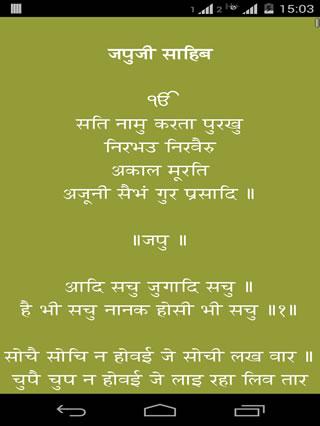 1 2 H 15:03
जपुजी साहिब
ੴ
सति नामु करता पुरखु
निरभउ निरवैरु
अकाल मूरति
अजूनी सैभं गुर प्रसादि ॥
॥जपु ॥
आदि सचु जुगादि सचु ॥
है भी सचु नानक होसी भी सचु ॥१॥
सोचै सोचि न होवई जे सोची लख वार ॥
चुपै चुप न होवई जे लाइ रहा लिव तार